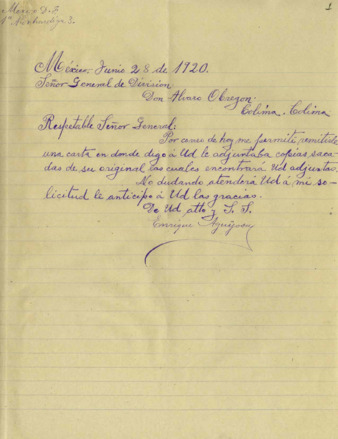 México D.F.
1
México, Junio 28 de 1920.
Señor General de División
Don Alvaro Obregon.
Colima. Colima
Respetable Señor General:
Por correo de hoy me permití remitirle
una carta en donde digo á Ud le adjuntaba copias saca-
das de su original las cuales encontrará Ud adjuntas.
No dudando atenderá Ud á mi so-
licitud le anticipo á Ud las gracias.
De Ud atto y S. S.
Enrique